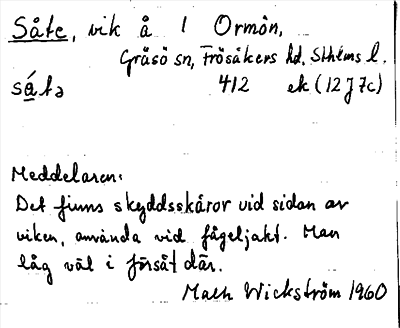 Såte, vik å 1 Ormön,
Gräsö sn, Frösåkers hd, Sthlms l.
sá̱tə 412 ek (12 J 7c)
Meddelaren:
Det finns skyddsskåror vid sidan av
viken, använda vid fågeljakt. Man
låg väl i försåt där.
Math Wickström 1960